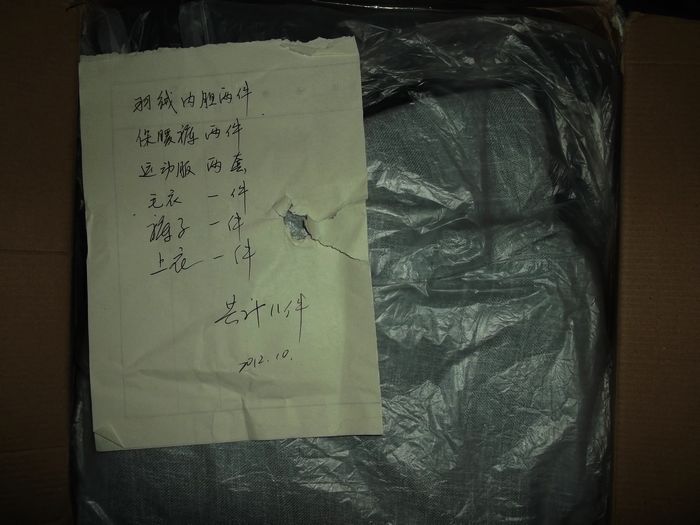 羽绒内胆两件
保暖裤两件
运动服两套
毛衣 一件
裤子 一件
上衣 一件
共计11件
2012.10.